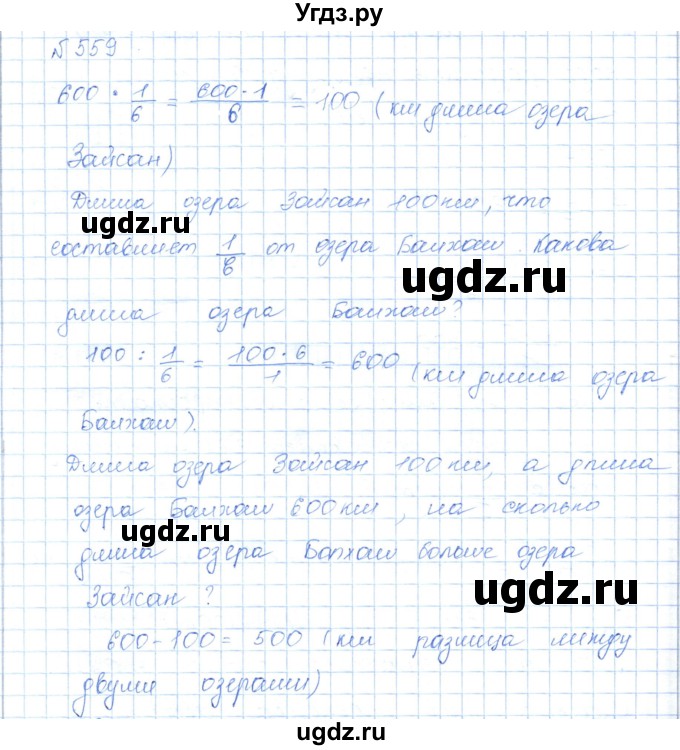 Угдз.ру
№559
600 · 1/6 = 600·1/6 = 100 (км длина озера
Зайсан)
Длина озера Зайсан 100км, что
ugdz.ru
составляет 1/6 от озера Балхаш. Какова
ugdz.ru
длина озера Балхаш?
100 : 1/6 = 100·6/1 = 600 (км длина озера
Балхаш).
Длина озера Зайсан 100км, а длина
озера Балхаш 600км, на сколько
ugdz.ru
длина озера Балхаш больше озера
ugdz.ru
Зайсан?
600-100=500 (км разница между
двумя озерами)
ugdz.ru